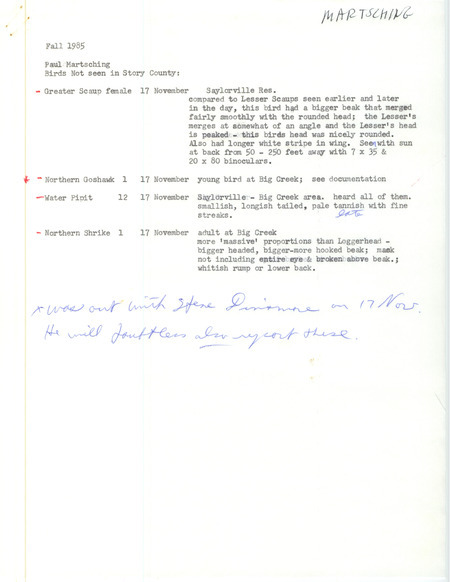 MARTSCHING
Fall 1985
Paul Martsching
Birds Not seen in Story County:
- Greater Scaup female 17 November Saylorville Res.
compared to Lesser Scaups seen earlier and later
in the day, this bird had a bigger beak that merged
fairly smoothly with the rounded head; the Lesser's
merges at somewhat of an angle and the Lesser's head
is peaked - this birds head was nicely rounded.
Also had longer white stripe in wing. Seen with sun
at back from 50 - 250 feet away with 7 x 35 &
20 x 80 binoculars.
- Northern Goshawk 1 17 November young bird at Big Creek; see documentation
- Water Pipit 12 17 November Saylorville - Big Creek area. heard all of them.
smallish, longish tailed, pale tannish with fine
streaks. late
- Northern Shrike 1 17 November adult at Big Creek
more 'massive' proportions than Loggerhead -
bigger headed, bigger-more hooked beak; mask
not including entire eye & broken above beak.;
whitish rump or lower back.
x was out with Steve Dinsmore on 17 Nov.
He will doubtless also report these.